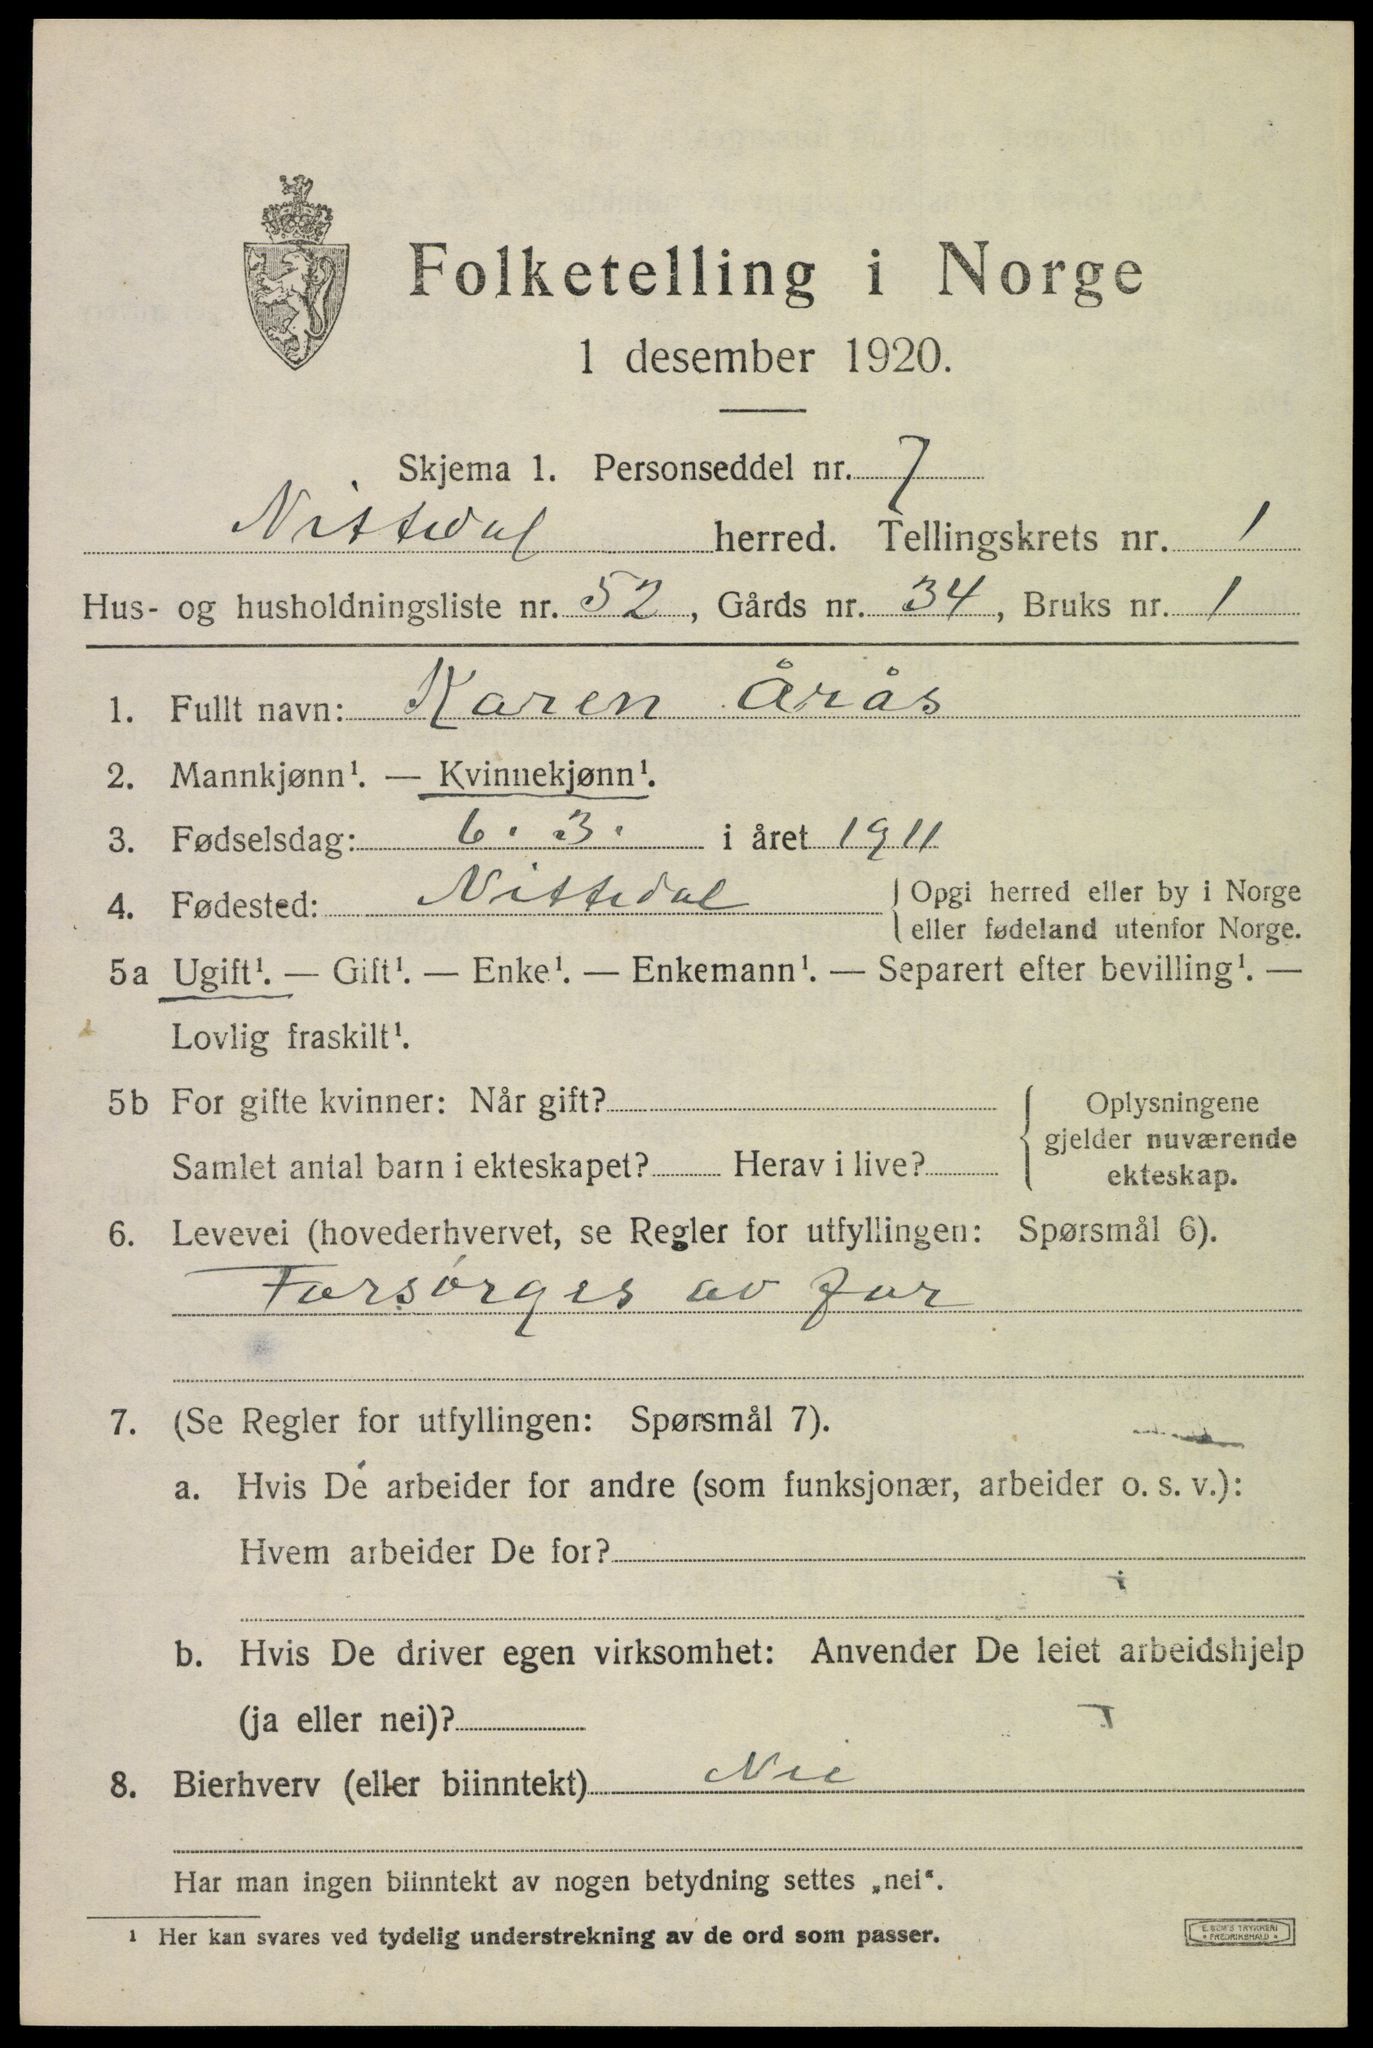 Folketelling i Norge
1 desember 1920.
Skjema 1. Personseddel nr. 7
Nittedal herred. Tellingskrets nr. 1
Hus- og husholdningsliste nr. 52, Gårds nr. 34, Bruks nr. 1
1. Fullt navn: Karen Årås
2. Mannkjønn¹. — Kvinnekjønn¹.
3. Fødselsdag: 6. 3. i året 1911
4. Fødested: Nittedal { Opgi herred eller by i Norge
eller fødeland utenfor Norge.
5a Ugift¹. — Gift¹. — Enke¹. — Enkemann¹. — Separert efter bevilling¹. —
Lovlig fraskilt¹.
5b For gifte kvinner: Når gift? { Oplysningene
gjelder nuværende
Samlet antal barn i ekteskapet? Herav i live?
ekteskap.
6. Levevei (hovederhvervet, se Regler for utfyllingen: Spørsmål 6).
Forsørges av far
7. (Se Regler for utfyllingen: Spørsmål 7).
a. Hvis De arbeider for andre (som funksjonær, arbeider o. s. v.):
Hvem arbeider De for?
b. Hvis De driver egen virksomhet: Anvender De leiet arbeidshjelp
(ja eller nei)?
8. Bierhverv (eller biinntekt) Nei
Har man ingen biinntekt av nogen betydning settes „nei“.
¹ Her kan svares ved tydelig understrekning av de ord som passer.
E. SEM'S TRYKKERI
FREDRIKSHALD